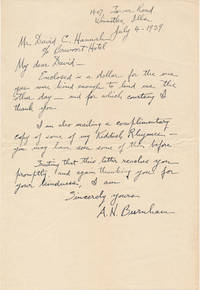 1407 Tower Road
Winnetka, Illa.
July 4 - 1939
Mr. David C. Hannah
% Brevoort Hotel
My dear David -
Enclosed is a dollar for the one
you were kind enough to lend me the
other day - and for which courtesy I
thank you.
I am also mailing a complimentary
copy of some of my Kiddish Rhymes -
you may have seen some of them before
Trusting that this letter reaches you
promptly and again thanking you for
your kindness, I am
Sincerely yours
A. N. Burnham